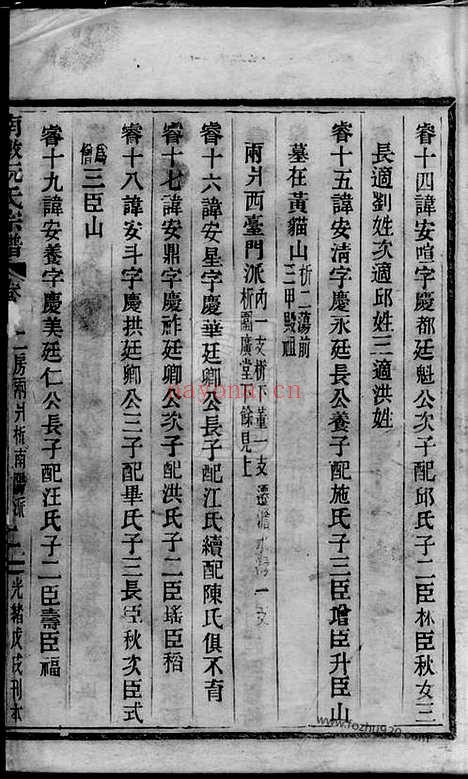 睿十四諱安喧字慶都廷魁公次子配邱氏子二臣林臣秋女三
長適劉姓次適邱姓三適洪姓
睿十五諱安清字慶永廷長公養子配施氏子三臣增臣升臣山
墓在黃貓山析二蕩前
三甲毀祖
兩爿西臺門派析圖廣堂餘見上
內一支樹下董一支
一支
睿十六諱安星字慶華廷卿公長子配江氏續配陳氏俱不育
睿十七諱安鼎字慶祚廷卿公次子配洪氏子二臣瑤臣稻
睿十八諱安斗字慶拱廷卿公三子配畢氏子三長臣秋次臣式
爲僧三臣山
睿十九諱安養字慶美廷仁公長子配汪氏子二臣壽臣福
氏宗譜 卷 二房兩爿析南陽派 光緒戊戌刊本
nayona.cn
www.fozhu920.com